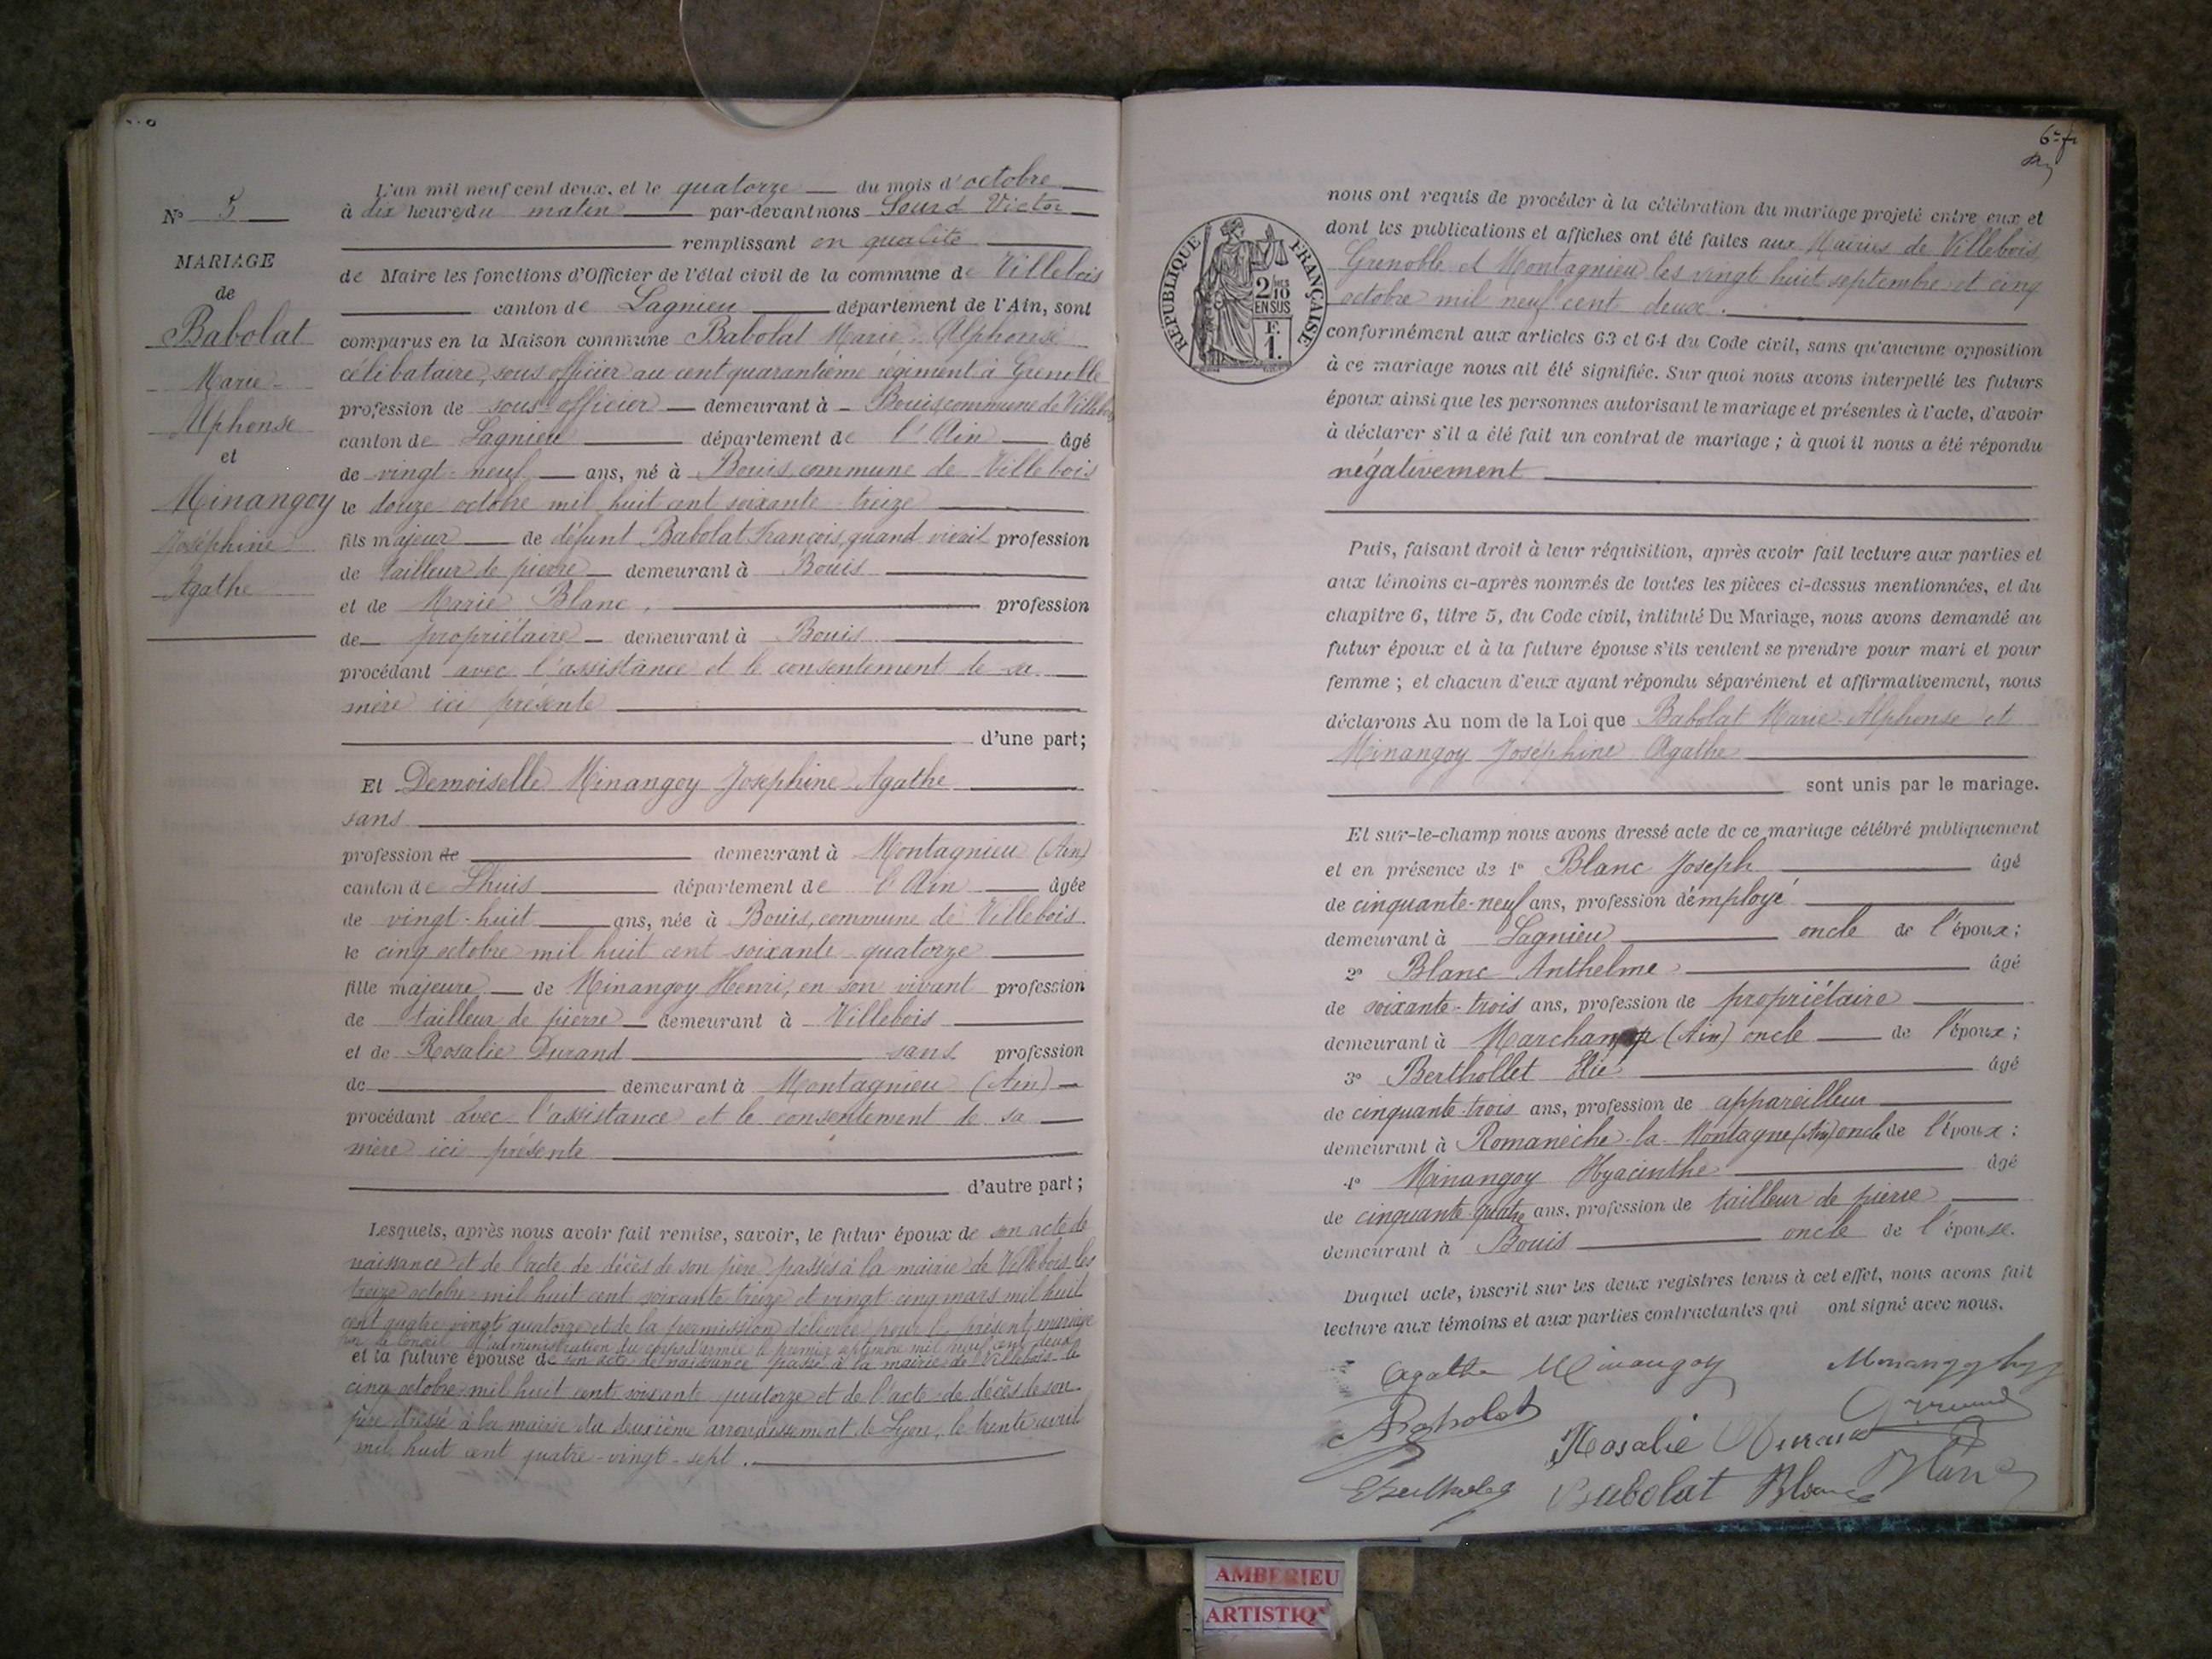 N° 5
MARIAGE
de
Babolat
Marie
Alphonse
et
Minangoy
Joséphine
Agathe
L'an mil neuf cent deux, et le quatorze du mois d'octobre
à dix heures du matin par-devant nous Sourd Victor
remplissant en qualité
de Maire les fonctions d'Officier de l'état civil de la commune de Villebois
canton de Lagnieu département de l'Ain, sont
comparus en la Maison commune Babolat Marie Alphonse
célibataire, sous officier au cent quarantième régiment à Grenoble
profession de sous officier demeurant à Bouis, commune de Villebois
canton de Lagnieu département de l'Ain âgé
de vingt-neuf ans, né à Bouis, commune de Villebois
le douze octobre mil huit cent soixante-treize
fils majeur de défunt Babolat François, quand vivait profession
de tailleur de pierre demeurant à Bouis
et de Marie Blanc, profession
de propriétaire demeurant à Bouis
procédant avec l'assistance et le consentement de sa
mère ici présente
d'une part;
Et Demoiselle Minangoy Joséphine Agathe
sans
profession de demeurant à Montagnieu (Ain)
canton de Lhuis département de l'Ain âgée
de vingt-huit ans, née à Bouis, commune de Villebois
le cinq octobre mil huit cent soixante-quatorze
fille majeure de Minangoy Henri, en son vivant profession
de tailleur de pierre demeurant à Villebois
et de Rosalie Durand sans profession
de demeurant à Montagnieu (Ain)
procédant avec l'assistance et le consentement de sa
mère ici présente
d'autre part;
Lesquels, après nous avoir fait remise, savoir, le futur époux de son acte de
naissance et de l'acte de décès de son père passés à la mairie de Villebois les
treize octobre mil huit cent soixante treize et vingt-cinq mars mil huit
cent quatre vingt quatorze et de la permission délivrée pour le présent mariage
par le Conseil d'administration du corps d'armée le premier septembre mil neuf cent deux
et la future épouse de son acte de naissance passé à la mairie de Villebois le
cinq octobre mil huit cent soixante quatorze et de l'acte de décès de son
père dressé à la mairie du deuxième arrondissement de Lyon, le trente avril
mil huit cent quatre-vingt-sept.
6e f
RÉPUBLIQUE FRANÇAISE
2/10 EN SUS
F. 1.
nous ont requis de procéder à la célébration du mariage projeté entre eux et
dont les publications et affiches ont été faites aux Mairies de Villebois,
Grenoble et Montagnieu les vingt huit septembre et cinq
octobre mil neuf cent deux.
conformément aux articles 63 et 64 du Code civil, sans qu'aucune opposition
à ce mariage nous ait été signifiée. Sur quoi nous avons interpellé les futurs
époux ainsi que les personnes autorisant le mariage et présentes à l'acte, d'avoir
à déclarer s'il a été fait un contrat de mariage; à quoi il nous a été répondu
négativement
Puis, faisant droit à leur réquisition, après avoir fait lecture aux parties et
aux témoins ci-après nommés de toutes les pièces ci-dessus mentionnées, et du
chapitre 6, titre 5, du Code civil, intitulé Du Mariage, nous avons demandé au
futur époux et à la future épouse s'ils veulent se prendre pour mari et pour
femme; et chacun d'eux ayant répondu séparément et affirmativement, nous
déclarons Au nom de la Loi que Babolat Marie-Alphonse et
Minangoy Joséphine Agathe
sont unis par le mariage.
Et sur-le-champ nous avons dressé acte de ce mariage célébré publiquement
et en présence de 1° Blanc Joseph âgé
de cinquante-neuf ans, profession d'employé
demeurant à Lagnieu oncle de l'époux;
2° Blanc Anthelme âgé
de soixante-trois ans, profession de propriétaire
demeurant à Marchamp (Ain) oncle de l'époux;
3° Berthollet Elie âgé
de cinquante-trois ans, profession de appareilleur
demeurant à Romanèche-la-Montagne (Ain) oncle de l'époux;
4° Minangoy Hyacinthe âgé
de cinquante-quatre ans, profession de tailleur de pierre
demeurant à Bouis oncle de l'épouse.
Duquel acte, inscrit sur les deux registres tenus à cet effet, nous avons fait
lecture aux témoins et aux parties contractantes qui ont signé avec nous.
Agathe Minangoy Minangoy hyp
ABabolat
Rosalie Durand
Babolat Blanc Blanc
AMBERIEU
ARTISTIQ